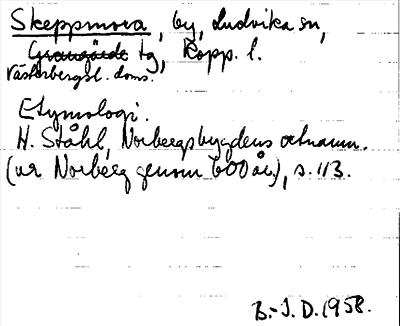 Skeppmora, by, Ludvika sn,
Grangärde tg, Kopp. l.
Västerbergsl. doms.
Etymologi.
H. Ståhl, Norbergsbygdens ortnamn.
(ur Norberg genom 600 år), s. 113.
B.-I. D. 1958.